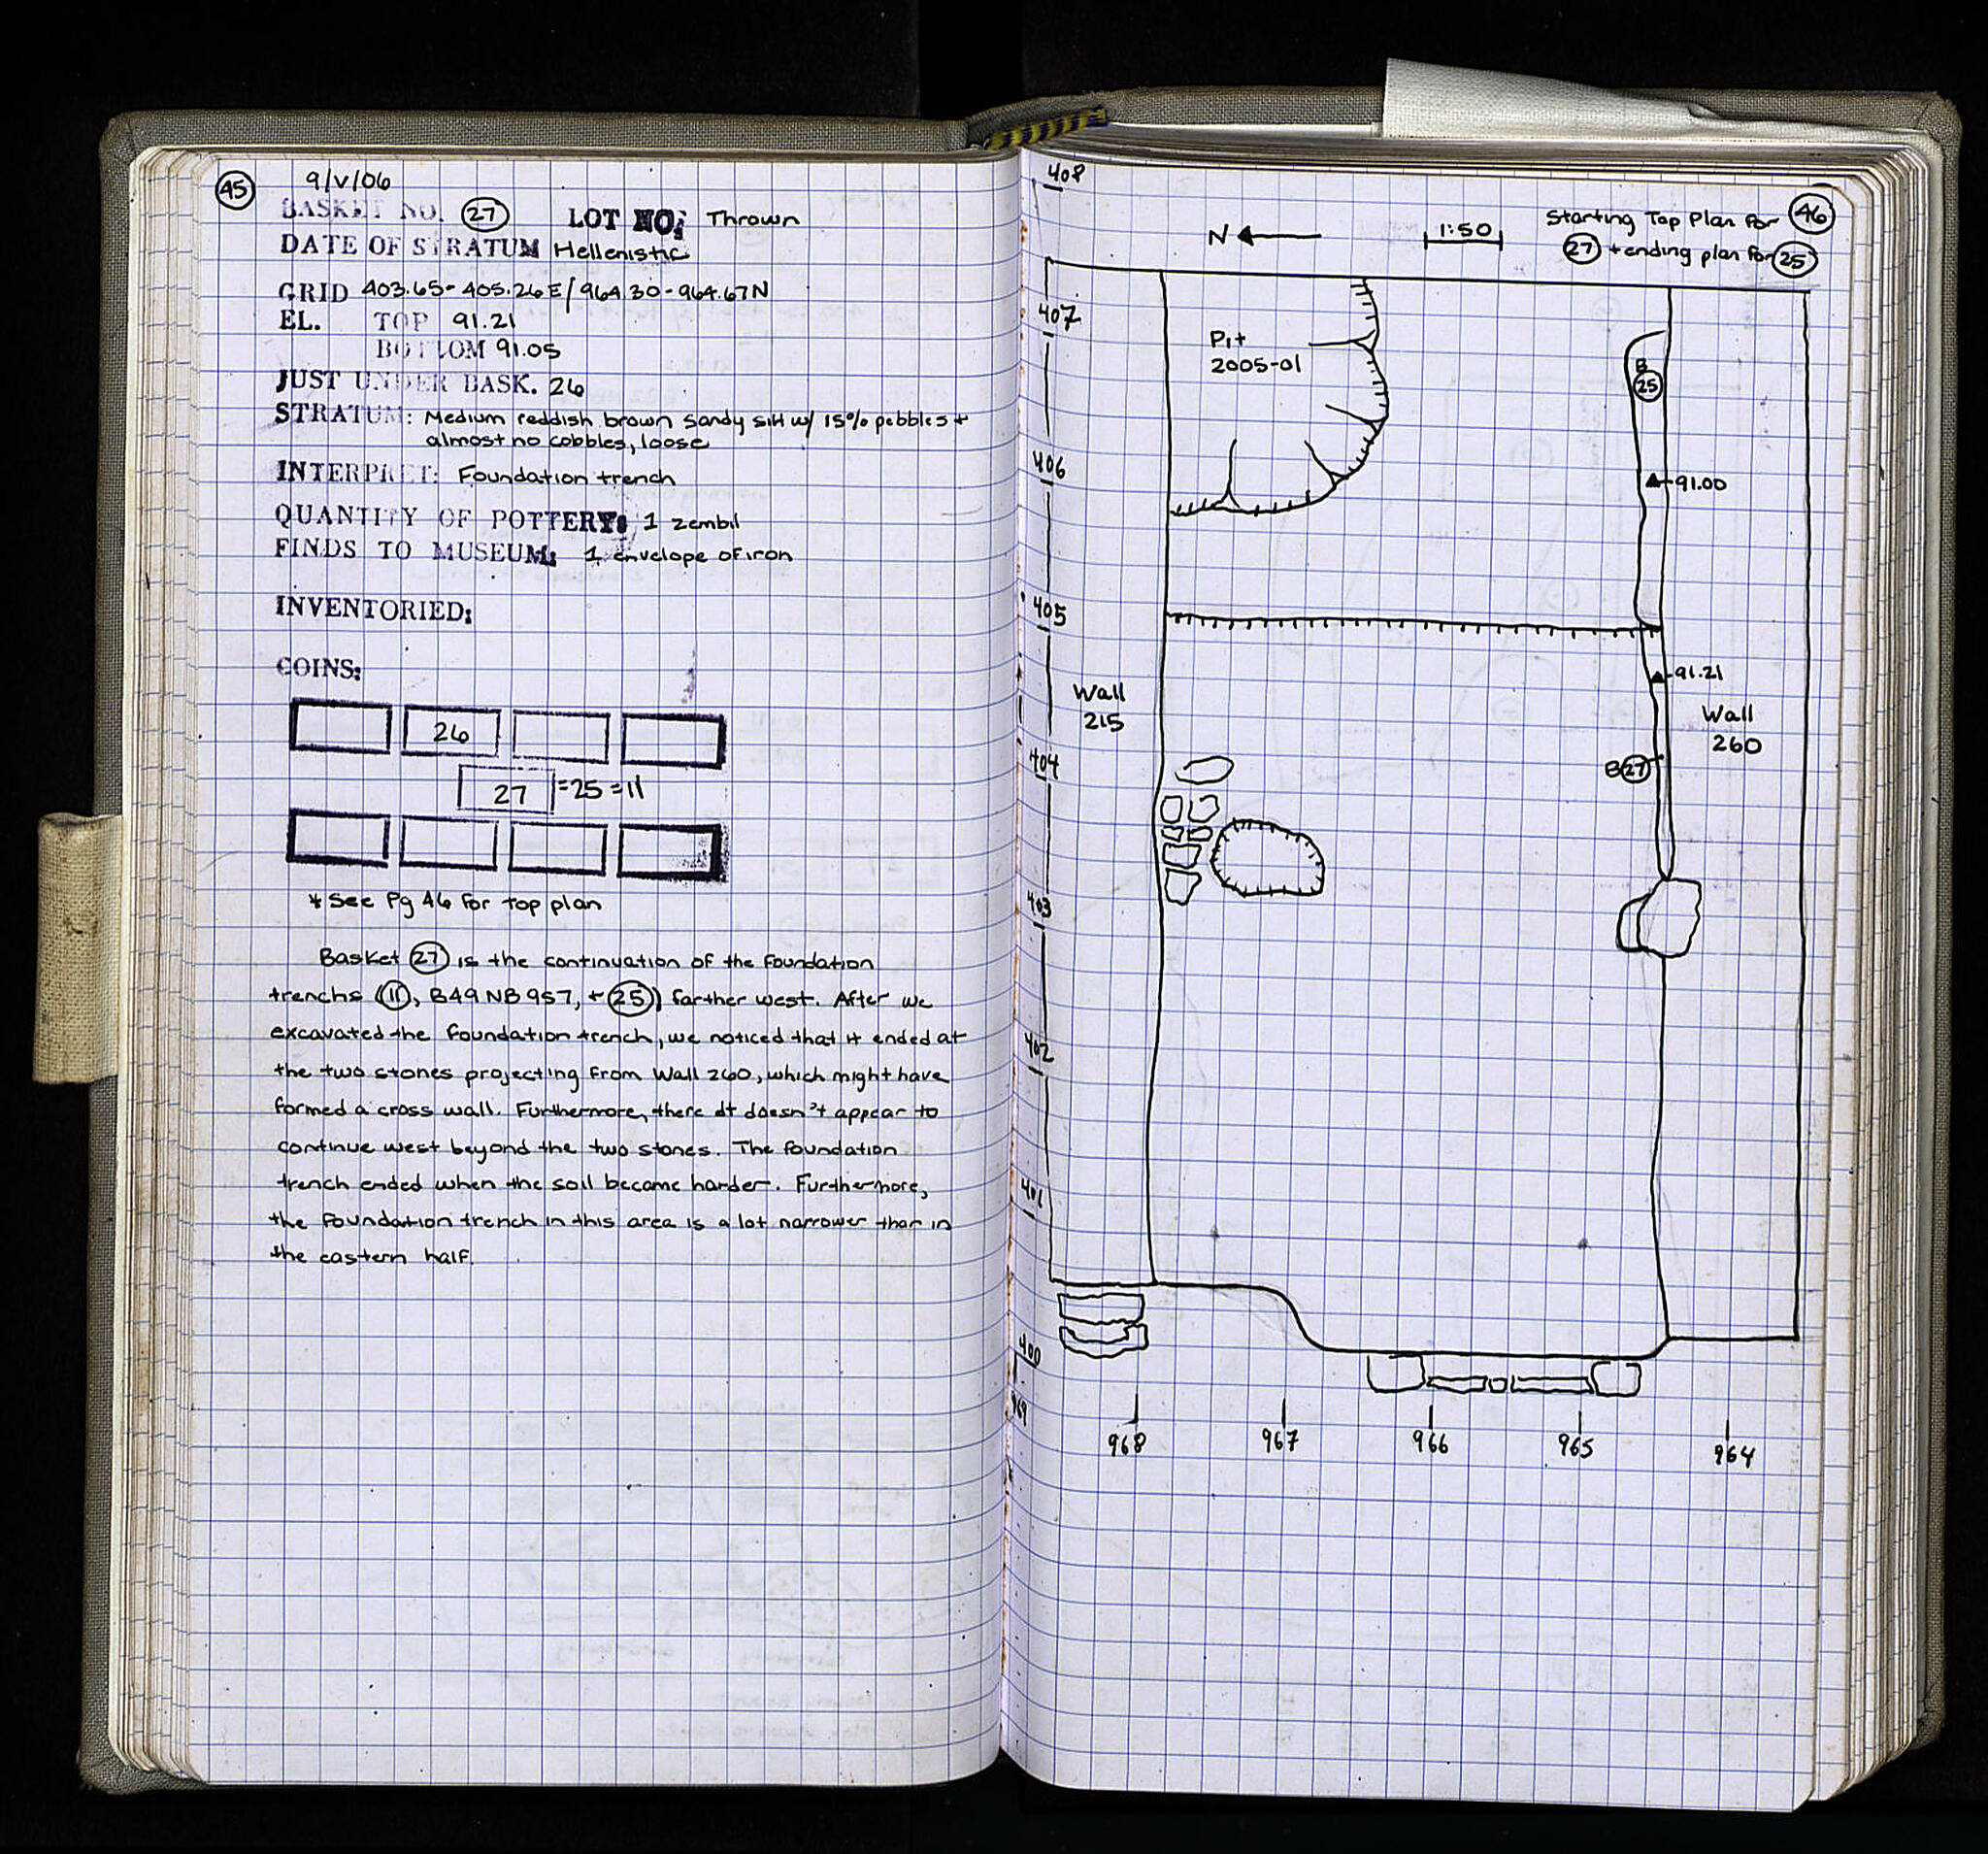 45
9/V/06
BASKET NO. 27 LOT NO: Thrown
DATE OF STRATUM Hellenistic
GRID 403.65-405.26E/964.30-964.67N
EL. TOP 91.21
BOTTOM 91.05
JUST UNDER BASK. 26
STRATUM: Medium reddish brown sandy silt w/ 15% pebbles +
almost no cobbles, loose
INTERPRET: Foundation trench
QUANTITY OF POTTERY: 1 zembil
FINDS TO MUSEUM: 1 envelope of iron
INVENTORIED:
COINS:
26
27 =25=11
* See Pg 46 for top plan
Basket 27 is the continuation of the foundation
trenchs (11, B49 NB 957, + 25) farther west. After we
excavated the foundation trench, we noticed that it ended at
the two stones projecting from Wall 260, which might have
formed a cross wall. Furthermore, there it doesn't appear to
continue west beyond the two stones. The foundation
trench ended when the soil became harder. Furthermore,
the foundation trench in this area is a lot narrower than in
the eastern half.
46
Starting Top Plan for
27 + ending plan for 25
N
1:50
408
407
406
405
404
403
402
401
400
969
Pit
2005-01
B
25
91.00
91.21
Wall
215
Wall
260
B27
968 967 966 965 964